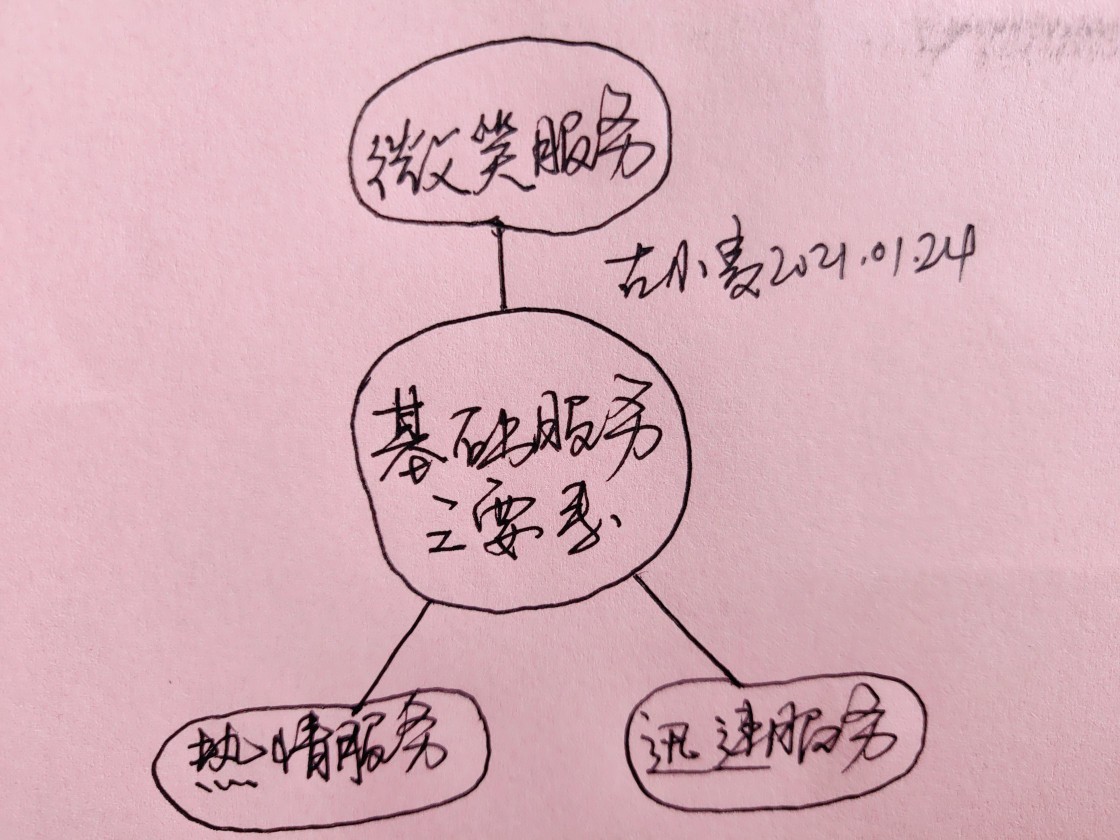 微笑服务
古小麦2021.01.24
基础服务
三要素
热情服务
迅速服务